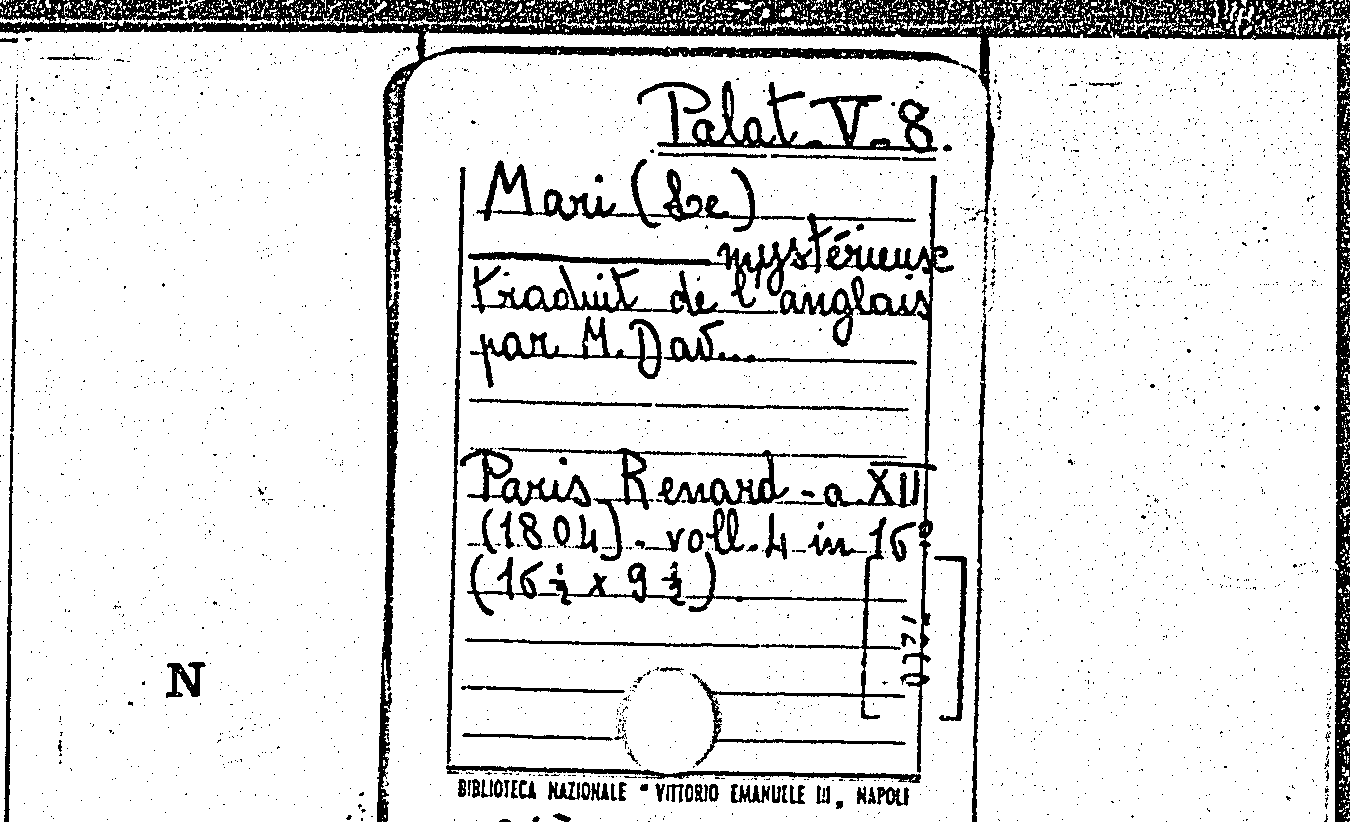 Palat. V. 8.
Mari (Le)
mystérieuse
traduit de l'anglais
par M. Dav...
Paris Renard - a. XII
(1804). voll. 4 in 16°
(16 ½ x 9 ½).
N
BIBLIOTECA NAZIONALE "VITTORIO EMANUELE III„ NAPOLI